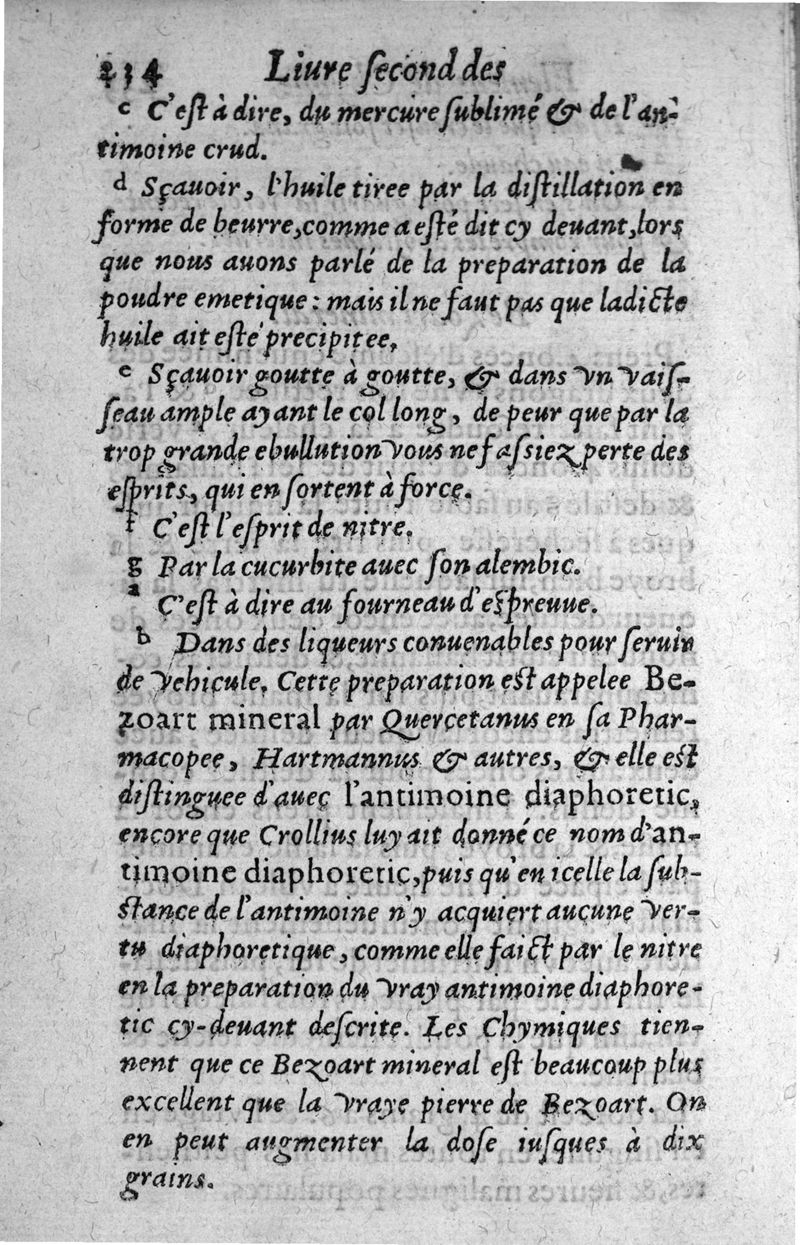 234 Liure ſecond des
c C'eſt à dire, du mercure ſublimé & de l'an-
timoine crud.
d Sçauoir, l'huile tiree par la diſtillation en
forme de beurre, comme a eſté dit cy deuant, lors
que nous auons parlé de la preparation de la
poudre emetique : mais il ne faut pas que ladicte
huile ait eſté precipitee,
e Sçauoir goutte à goutte, & dans vn vaiſ-
ſeau ample ayant le col long, de peur que par la
trop grande ebullution vous ne faſsiez perte des
eſprits, qui en ſortent à force.
f C'eſt l'eſprit de nitre.
g Par la cucurbite auec ſon alembic.
a C'eſt à dire au fourneau d'eſpreuue.
b Dans des liqueurs conuenables pour ſeruir
de vehicule, Cette preparation eſt appelee Be-
zoart mineral par Quercetanus en ſa Phar-
macopee, Hartmannus & autres, & elle eſt
diſtinguee d'auec l'antimoine diaphoretic,
encore que Crollius luy ait donné ce nom d'an-
timoine diaphoretic, puis qu'en icelle la ſub-
ſtance de l'antimoine n'y acquiert aucune ver-
tu diaphoretique, comme elle faict par le nitre
en la preparation du vray antimoine diaphore-
tic cy-deuant deſcrite. Les Chymiques tien-
nent que ce Bezoart mineral eſt beaucoup plus
excellent que la vraye pierre de Bezoart. On
en peut augmenter la doſe iuſques à dix
grains.